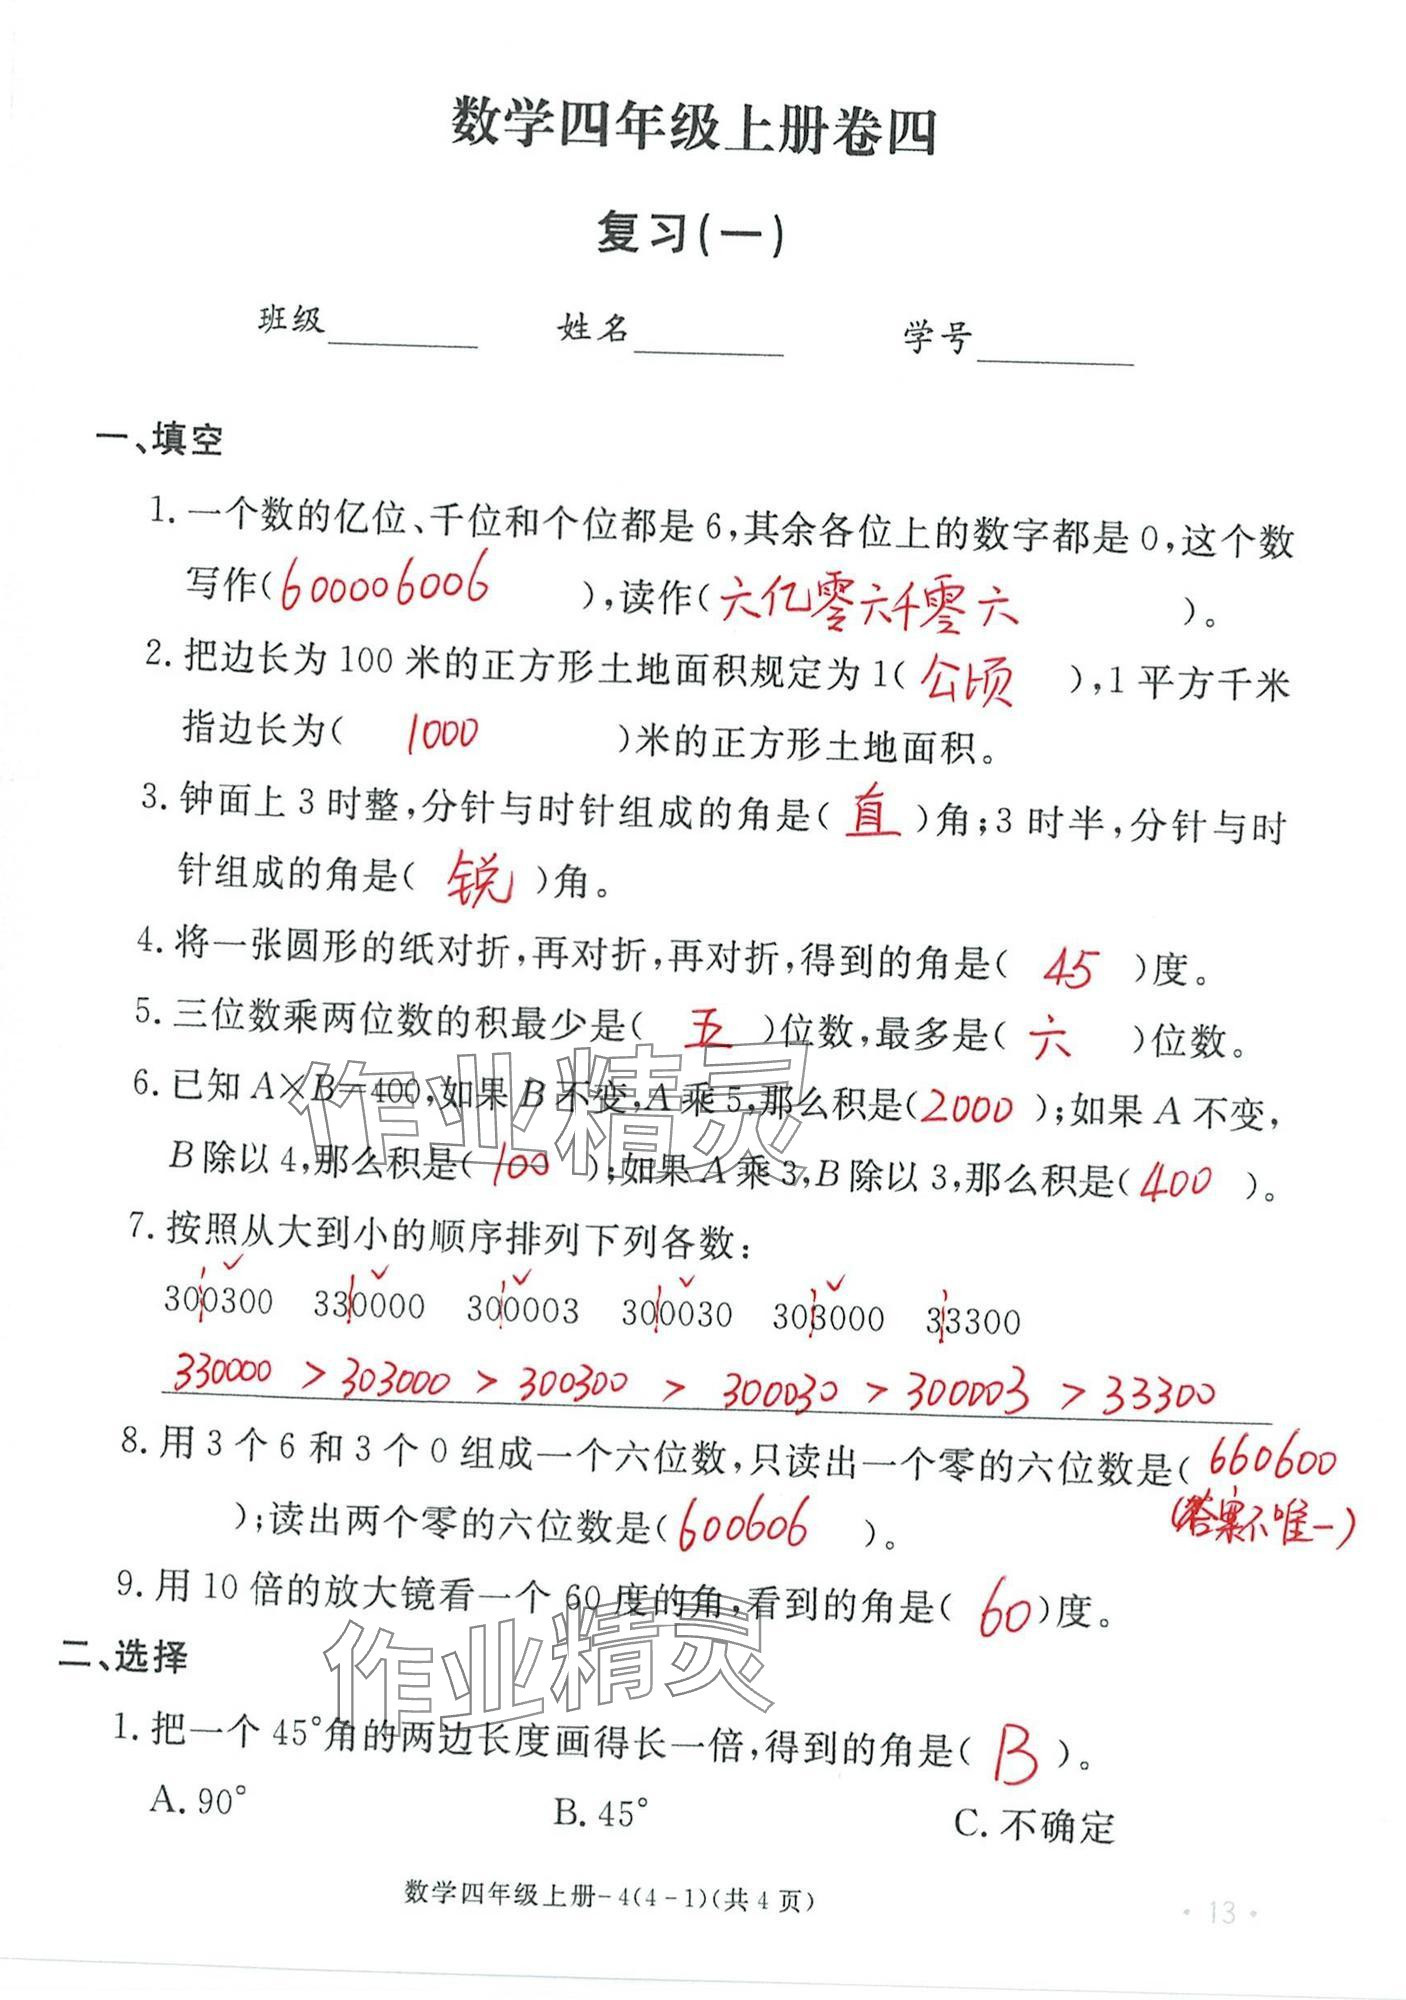 数学四年级上册卷四
复习(一)
班级 姓名 学号
一、填空
1. 一个数的亿位、千位和个位都是6,其余各位上的数字都是0,这个数
写作(600006006),读作(六亿零六千零六)。
2. 把边长为100米的正方形土地面积规定为1(公顷),1平方千米
指边长为(1000)米的正方形土地面积。
3. 钟面上3时整,分针与时针组成的角是(直)角;3时半,分针与时
针组成的角是(锐)角。
4. 将一张圆形的纸对折,再对折,再对折,得到的角是(45)度。
5. 三位数乘两位数的积最少是(五)位数,最多是(六)位数。
6. 已知A×B=400,如果B不变,A乘5,那么积是(2000);如果A不变,
B除以4,那么积是(100);如果A乘3,B除以3,那么积是(400)。
作业精灵
7. 按照从大到小的顺序排列下列各数:
300300 330000 300003 300030 303000 33300
330000 > 303000 > 300300 > 300030 > 300003 > 33300
8. 用3个6和3个0组成一个六位数,只读出一个零的六位数是(660600
);读出两个零的六位数是(600606)。
(答案不唯一)
9. 用10倍的放大镜看一个60度的角,看到的角是(60)度。
作业精灵
二、选择
1. 把一个45°角的两边长度画得长一倍,得到的角是(B)。
A. 90° B. 45° C. 不确定
数学四年级上册-4(4-1)(共4页)
·13·